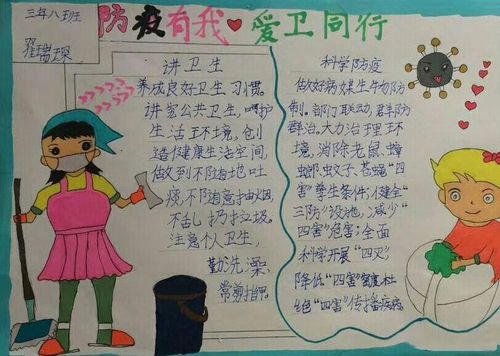 三年八班
翟瑞琛
防疫有我 爱卫同行
讲卫生
养成良好卫生习惯。
讲究公共卫生,呵护
生活环境,创
造健康生活空间,
做到不随地吐
痰,不随意抽烟,
不乱扔垃圾。
注意个人卫生,
勤洗澡,
常剪指甲。
科学防疫
做好病媒生物防
制。部门联动,群防
群治。大力治理环
境,消除老鼠、蟑
螂、蚊子、苍蝇“四
害”孳生条件;健全“
三防”设施,减少“
四害”危害;全面
科学开展“四灭”
降低“四害”密度杜
绝“四害”传播疾病。